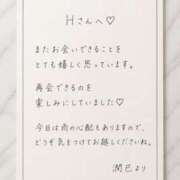 Hさんへ♡
またお会いできることを
とても嬉しく思っています。
再会できるのを
楽しみにしていました♡
今日は雨の心配もありますので、
どうぞ気をつけてお越しくださいね。
潤巳より